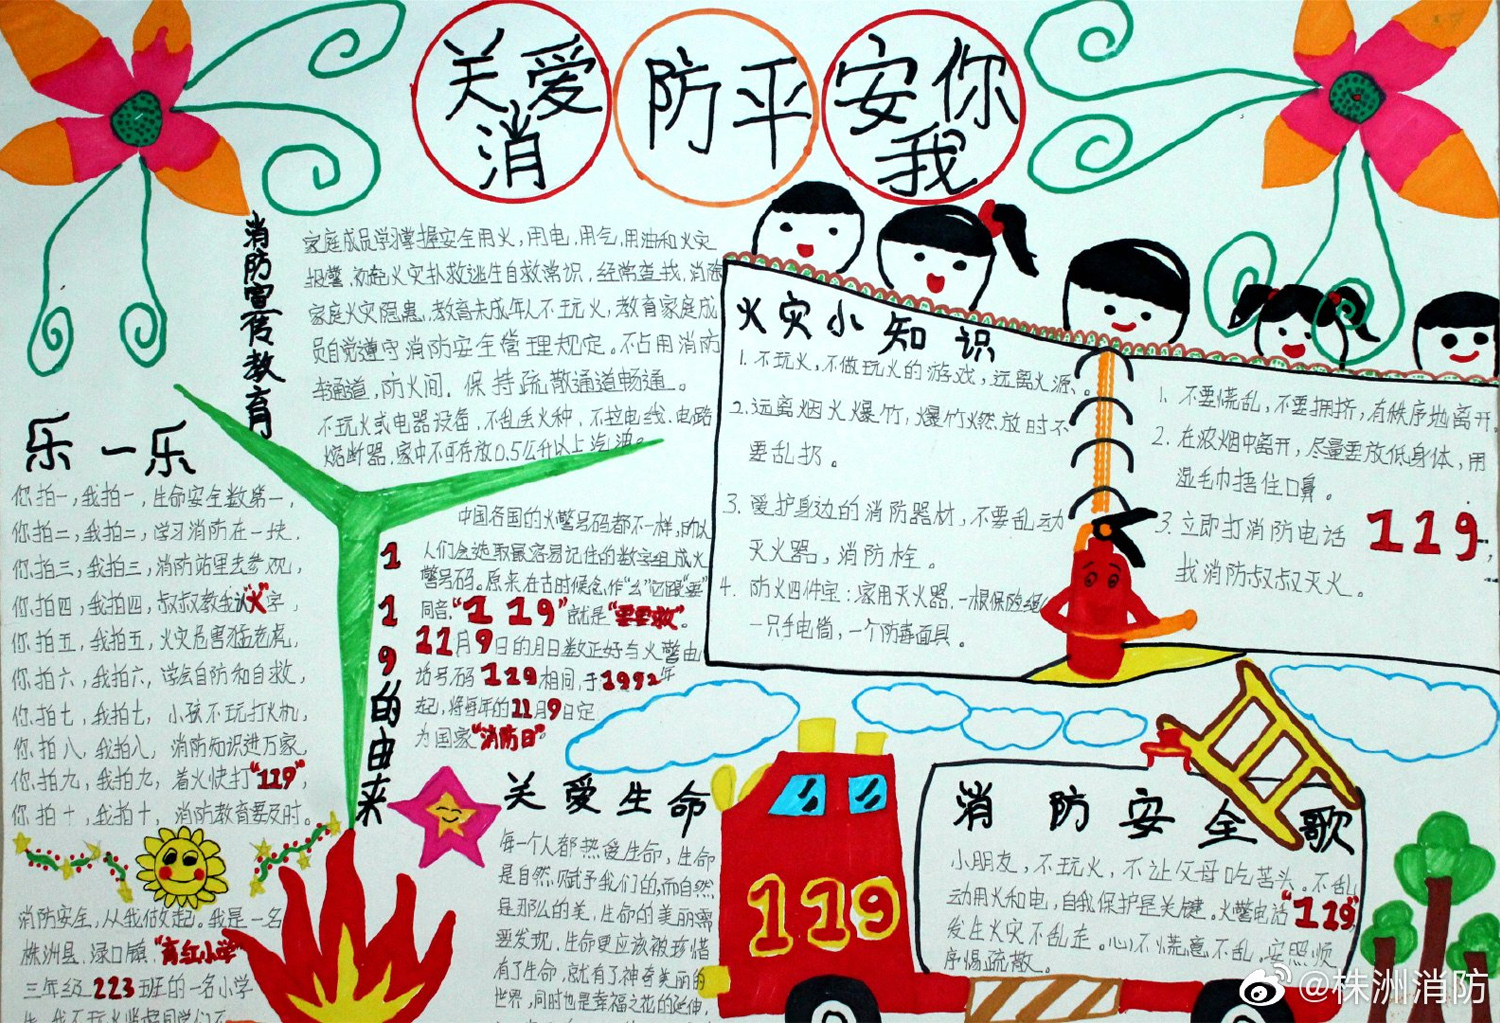 关爱
消
防平
安你
我
消防宣传教育
家庭成员学习掌握安全用火，用电，用气，用油和火灾
报警，初起火灾扑救逃生自救常识，经常查找，消除
家庭火灾隐患，教育未成年人不玩火，教育家庭成
员自觉遵守消防安全管理规定。不占用消防
车通道，防火间，保持疏散通道畅通。
不玩火或电器设备，不乱丢火种，不接电线，电路
熔断器，家中不可存放0.5公升以上汽油。
乐一乐
你拍一，我拍一，生命安全数第一，
你拍二，我拍二，学习消防在一块，
你拍三，我拍三，消防站里去参观，
你拍四，我拍四，叔叔教我认“火”字，
你拍五，我拍五，火灾危害猛老虎，
你拍六，我拍六，学会自防和自救，
你拍七，我拍七，小孩不玩打火机，
你拍八，我拍八，消防知识进万家，
你拍九，我拍九，着火快打“119”，
你拍十，我拍十，消防教育要及时。
消防安全，从我做起。我是一名
株洲县，渌口镇，“育红小学”
三年级223班的一名小学
生，我不玩火
119的由来
中国各国的火警号码都不一样，由火
人们会选取最容易记住的数字组成火
警号码。原来在古时候念，作“幺”它跟“要”
同音，“119”就是“要要救”。
11月9日的月日数正好与火警电
话号码119相同，于1992年
起，将每年的11月9日定
为国家“消防日”
关爱生命
每一个人都热爱生命，生命
是自然，赋予我们的，而自然
是那么的美，生命的美丽需
要发现，生命更应该被珍惜
有了生命，就有了神奇美丽的
世界，同时也是幸福之花的延伸，
火灾小知识
1. 不玩火，不做玩火的游戏，远离火源。
2. 远离烟火爆竹，爆竹燃放时不
要乱扔。
3. 爱护身边的消防器材，不要乱动
灭火器，消防栓。
4. 防火四件宝：家用灭火器，一根保险绳
一只手电筒，一个防毒面具。
1. 不要慌乱，不要拥挤，有秩序地离开
2. 在浓烟中离开，尽量要放低身体，用
湿毛巾捂住口鼻。
3. 立即打消防电话119，
找消防叔叔灭火。
119
消防安全歌
小朋友，不玩火，不让父母吃苦头。不乱
动用火和电，自我保护是关键。火警电话“119”
发生火灾不乱走。心不慌意不乱，安照顺
序惕疏散。
@株洲消防